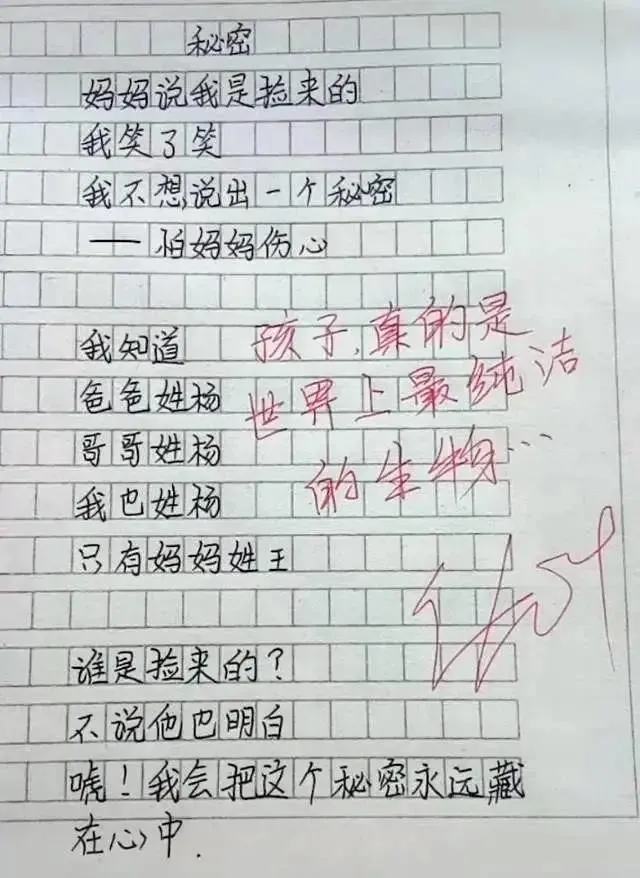 秘密
妈妈说我是捡来的
我笑了笑
我不想说出一个秘密
——怕妈妈伤心
我知道
爸爸姓杨
哥哥姓杨
我也姓杨
只有妈妈姓王
谁是捡来的？
不说他也明白
唬！我会把这个秘密永远藏
在心中.
孩子,真的是
世界上最纯洁
的生物…